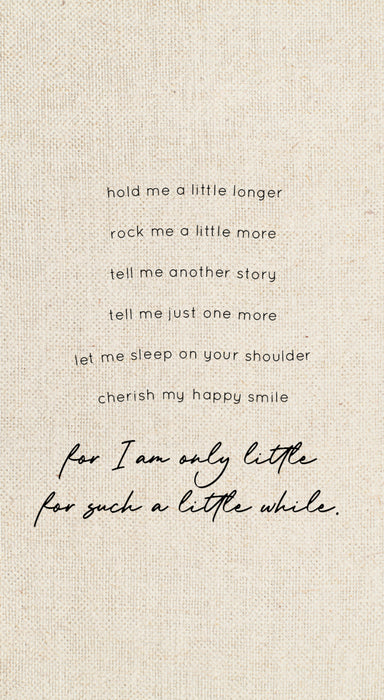 hold me a little longer
rock me a little more
tell me another story
tell me just one more
let me sleep on your shoulder
cherish my happy smile
for I am only little
for such a little while.